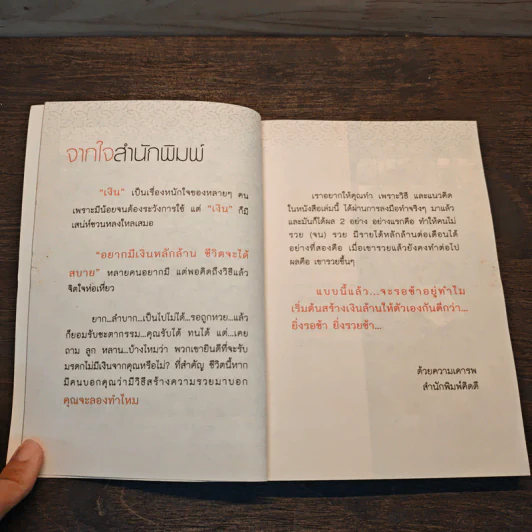 จากใจสำนักพิมพ์
"เงิน" เป็นเรื่องหนักใจของหลายๆ คน
เพราะมีน้อยจนต้องระวังการใช้ แต่ "เงิน" ก็มี
เสน่ห์ชวนหลงใหลเสมอ
"อยากมีเงินหลักล้าน ชีวิตจะได้
สบาย" หลายคนอยากมี แต่พอคิดถึงวิธีแล้ว
จิตใจห่อเหี่ยว
ยาก...ลำบาก...เป็นไปไม่ได้...รอถูกหวย...แล้ว
ก็ยอมรับชะตากรรม...คุณรับได้ ทนได้ แต่...เคย
ถาม ลูก หลาน...บ้างไหมว่า พวกเขายินดีที่จะรับ
มรดกไม่มีเงินจากคุณหรือไม่? ที่สำคัญ ชีวิตนี้หาก
มีคนบอกคุณว่ามีวิธีสร้างความรวยมาบอก
คุณจะลองทำไหม
เราอยากให้คุณทำ เพราะวิธี และแนวคิด
ในหนังสือเล่มนี้ ได้ผ่านการลงมือทำจริงๆ มาแล้ว
และมันก็ได้ผล 2 อย่าง อย่างแรกคือ ทำให้คนไม่
รวย (จน) รวย มีรายได้หลักล้านต่อเดือนได้
อย่างที่สองคือ เมื่อเขารวยแล้วยังคงทำต่อไป
ผลคือ เขารวยขึ้นๆ
แบบนี้แล้ว...จะรอช้าอยู่ทำไม
เริ่มต้นสร้างเงินล้านให้ตัวเองกันดีกว่า...
ยิ่งรอช้า ยิ่งรวยช้า...
ด้วยความเคารพ
สำนักพิมพ์คิดดี